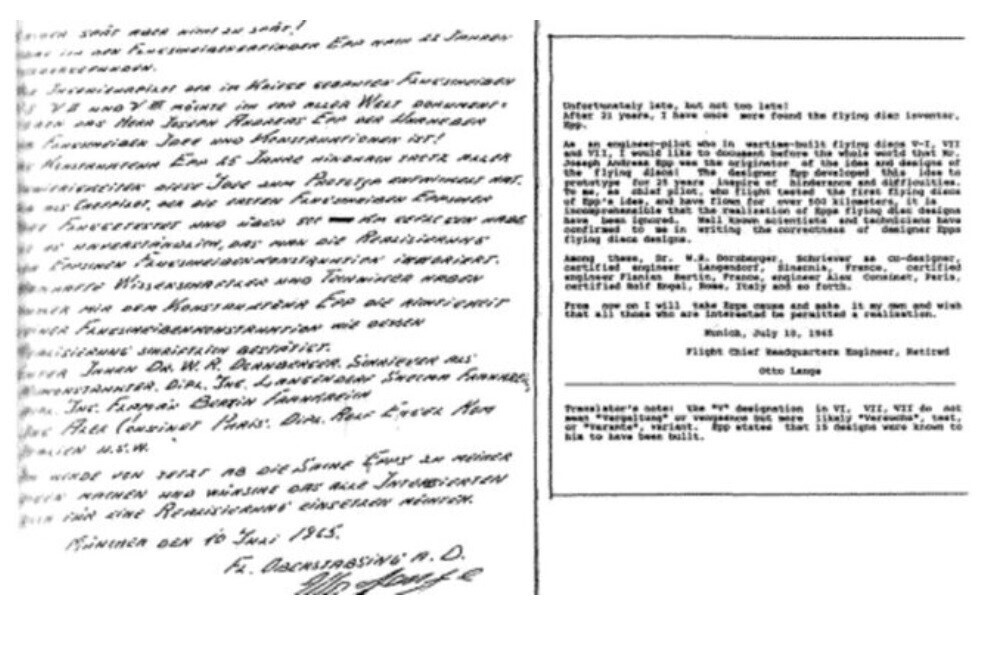 SPÄT ABER NICHT ZU SPÄT!
DEN FLUGSCHEIBENERFINDER EPP NACH 21 JAHREN
INGENIEURPILOT DER IM KRIEGE GEBAUTEN FLUGSCHEIBEN
V II UND V III MÖCHTE ICH VOR ALLER WELT
DAS HERR JOSEPH ANDREAS EPP DER URHEBER
FLUGSCHEIBEN IDEE UND KONSTRUKTIONEN IST!
EPP 25 JAHRE HINDURCH TROTZ ALLER
DIESE IDEE ZUM PROTOTYP ENTWICKELT HAT.
ALS CHEFPILOT, DER DIE ERSTEN FLUGSCHEIBEN
UND ÜBER 500 KM GEFLOGEN HABE
UNVERSTÄNDLICH, DAS MAN DIE REALISIERUNG
FLUGSCHEIBENKONSTRUKTION IGNORIERT.
WISSENSCHAFTLER UND TECHNIKER HABEN
MIR DEM EPP DIE RICHTIGKEIT
FLUGSCHEIBENKONSTRUKTION WIE DESSEN
SCHRIFTLICH BESTÄTIGT.
IHNEN DR. W. R. DORNBERGER, SCHRIEVER ALS
DIPL. ING. LANGENDORF FRANKREICH
ING. BERTIN FRANKREICH
PARIS. DIPL. ROLF ENGEL ROM
U.S.W.
WERDE VON JETZT AB DIE SACHE EPPS ZU MEINER
MACHEN UND WÜNSCHE DAS ALLE INTERESSIERTEN
FÜR EINE REALISIERUNG EINSETZEN MÖCHTEN.
MÜNCHEN DEN 10 JULI 1965.
FL. OBERSTABSING A. D.
Unfortunately late, but not too late!
After 21 years, I have once more found the flying disc inventor,
Epp.
As an engineer-pilot who in wartime-built flying discs V-I, VII
and VII, I would like to document before the whole world that Mr.
Joseph Andreas Epp was the originator of the idea and designs of
the flying discs! The designer Epp developed this idea to
prototype for 25 years inspire of hinderance and difficulties.
To me, as chief pilot, who flight tested the first flying discs
of Epp's idea, and have flown for over 500 kilometers, it is
incomprehensible that the realization of Epps flying disc designs
have been ignored. Well known scientists and technicians have
confirmed to me in writing the correctness of designer Epps
flying discs designs.
Among these, Dr. W.R. Dornberger, Schriever as co-designer,
certified engineer Langendorf, France, certified
engineer Bertin, France, engineer Alex Paris,
certified Rolf Engel, Rome, Italy and so forth.
From now on I will take Epps cause and make it my own and wish
that all those who are interested be permitted a realization.
Munich, July 10, 1965
Flight Chief Headquarters Engineer, Retired
Otto Lange
Translator's note: the "V" designation in VI, VII, VII do not
mean "Vergeltung" or vengeance but more likely "Versuchs", test,
or "Variante", variant. Epp states that 15 designs were known to
him to have been built.